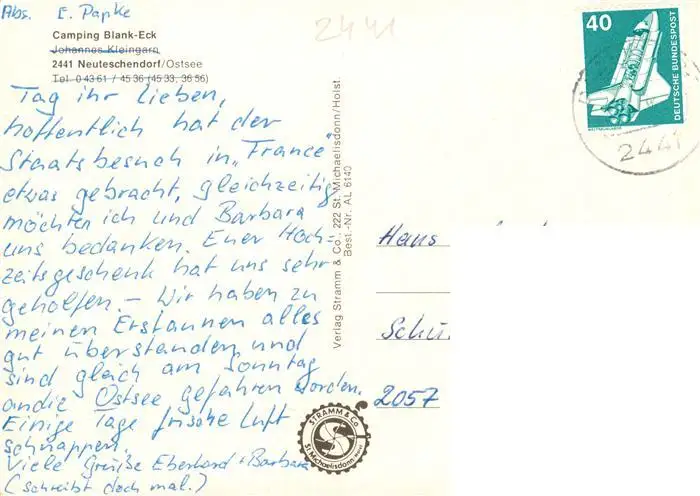 Abs. E. Papke
Camping Blank-Eck
Johannes Kleingarn
2441 Neuteschendorf/Ostsee
Tel. 0 43 61 / 45 36 (45 33, 36 56)
Tag ihr Lieben,
hoffentlich hat der
Staatsbesuch in „France"
etwas gebracht, gleichzeitig
möchten ich und Barbara
uns bedanken. Euer Hoch-
zeitsgeschenk hat uns sehr
geholfen. – Wir haben zu
meinen Erstaunen alles
gut überstanden und
sind gleich am Sonntag
an die Ostsee gefahren worden.
Einige Tage frische Luft
schnappen.
Viele Grüße Eberhard + Barbara
(schreibt doch mal.)
2441
Verlag Stramm & Co., 222 St. Michaelisdonn/Holst.
Best.-Nr. AL 6140
STRAMM & Co.
St. Michaelisdonn
40
DEUTSCHE BUNDESPOST
WELTRAUMLABOR
2441
Hans
Schü
2057